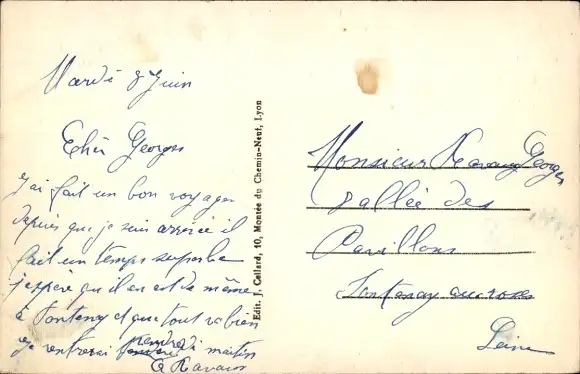 Mardi 8 Juin
Cher Georges
J'ai fait un bon voyage
depuis que je suis arrivée il
fait un temps superbe
j'espère qu'il en est de même
à Fontenay et que tout va bien
je rentrerai vendredi matin
Ravaux
Edit. J. Cellard, 10, Montée du Chemin-Neuf, Lyon
Monsieur Ravaux Georges
allée des
Pavillons
Fontenay aux roses
Seine